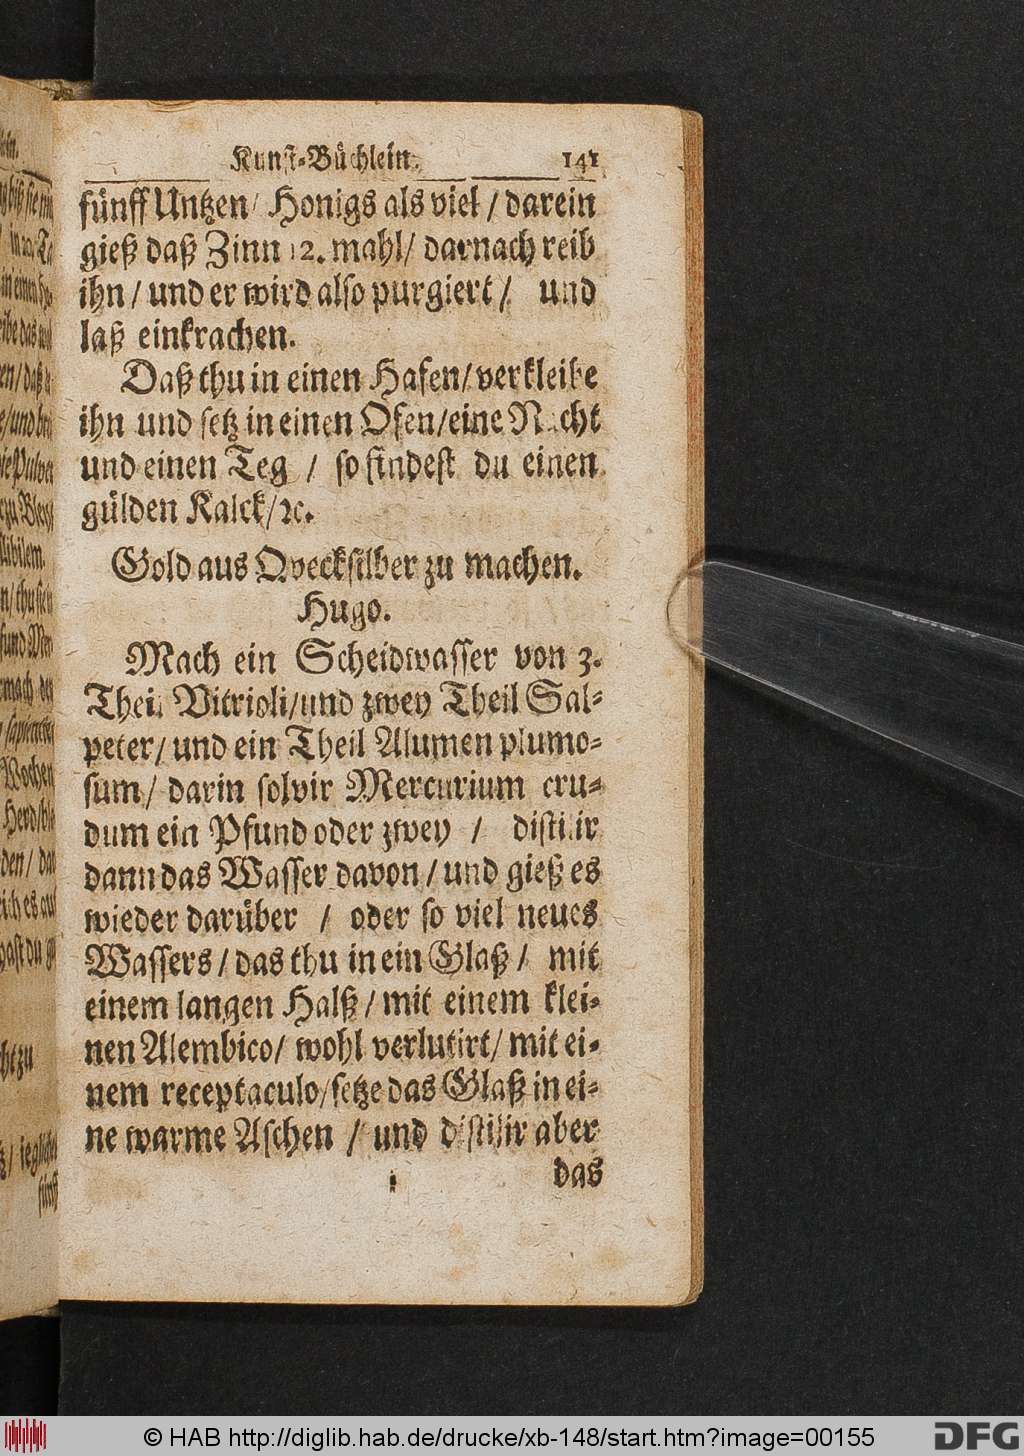 Kunst-Büchlein. 141
fünff Untzen / Honigs als viel / darein
gieß daß Zinn 12. mahl / darnach reib
ihn / und er wird also purgiert / und
laß einkrachen.
Daß thu in einen Hafen / verkleibe
ihn und setz in einen Ofen / eine Nacht
und einen Teg / so findest du einen
gülden Kalck / ꝛc.
Gold aus Qvecksilber zu machen.
Hugo.
Mach ein Scheidwasser von 3.
Theil Vitrioli / und zwey Theil Sal-
peter / und ein Theil Alumen plumo-
sum / darin solvir Mercurium cru-
dum ein Pfund oder zwey / distilir
dann das Wasser davon / und gieß es
wieder darüber / oder so viel neues
Wassers / das thu in ein Glaß / mit
einem langen Halß / mit einem klei-
nen Alembico / wohl verlutirt / mit ei-
nem receptaculo / setze das Glaß in ei-
ne warme Aschen / und distilir aber
das
© HAB http://diglib.hab.de/drucke/xb-148/start.htm?image=00155
DFG